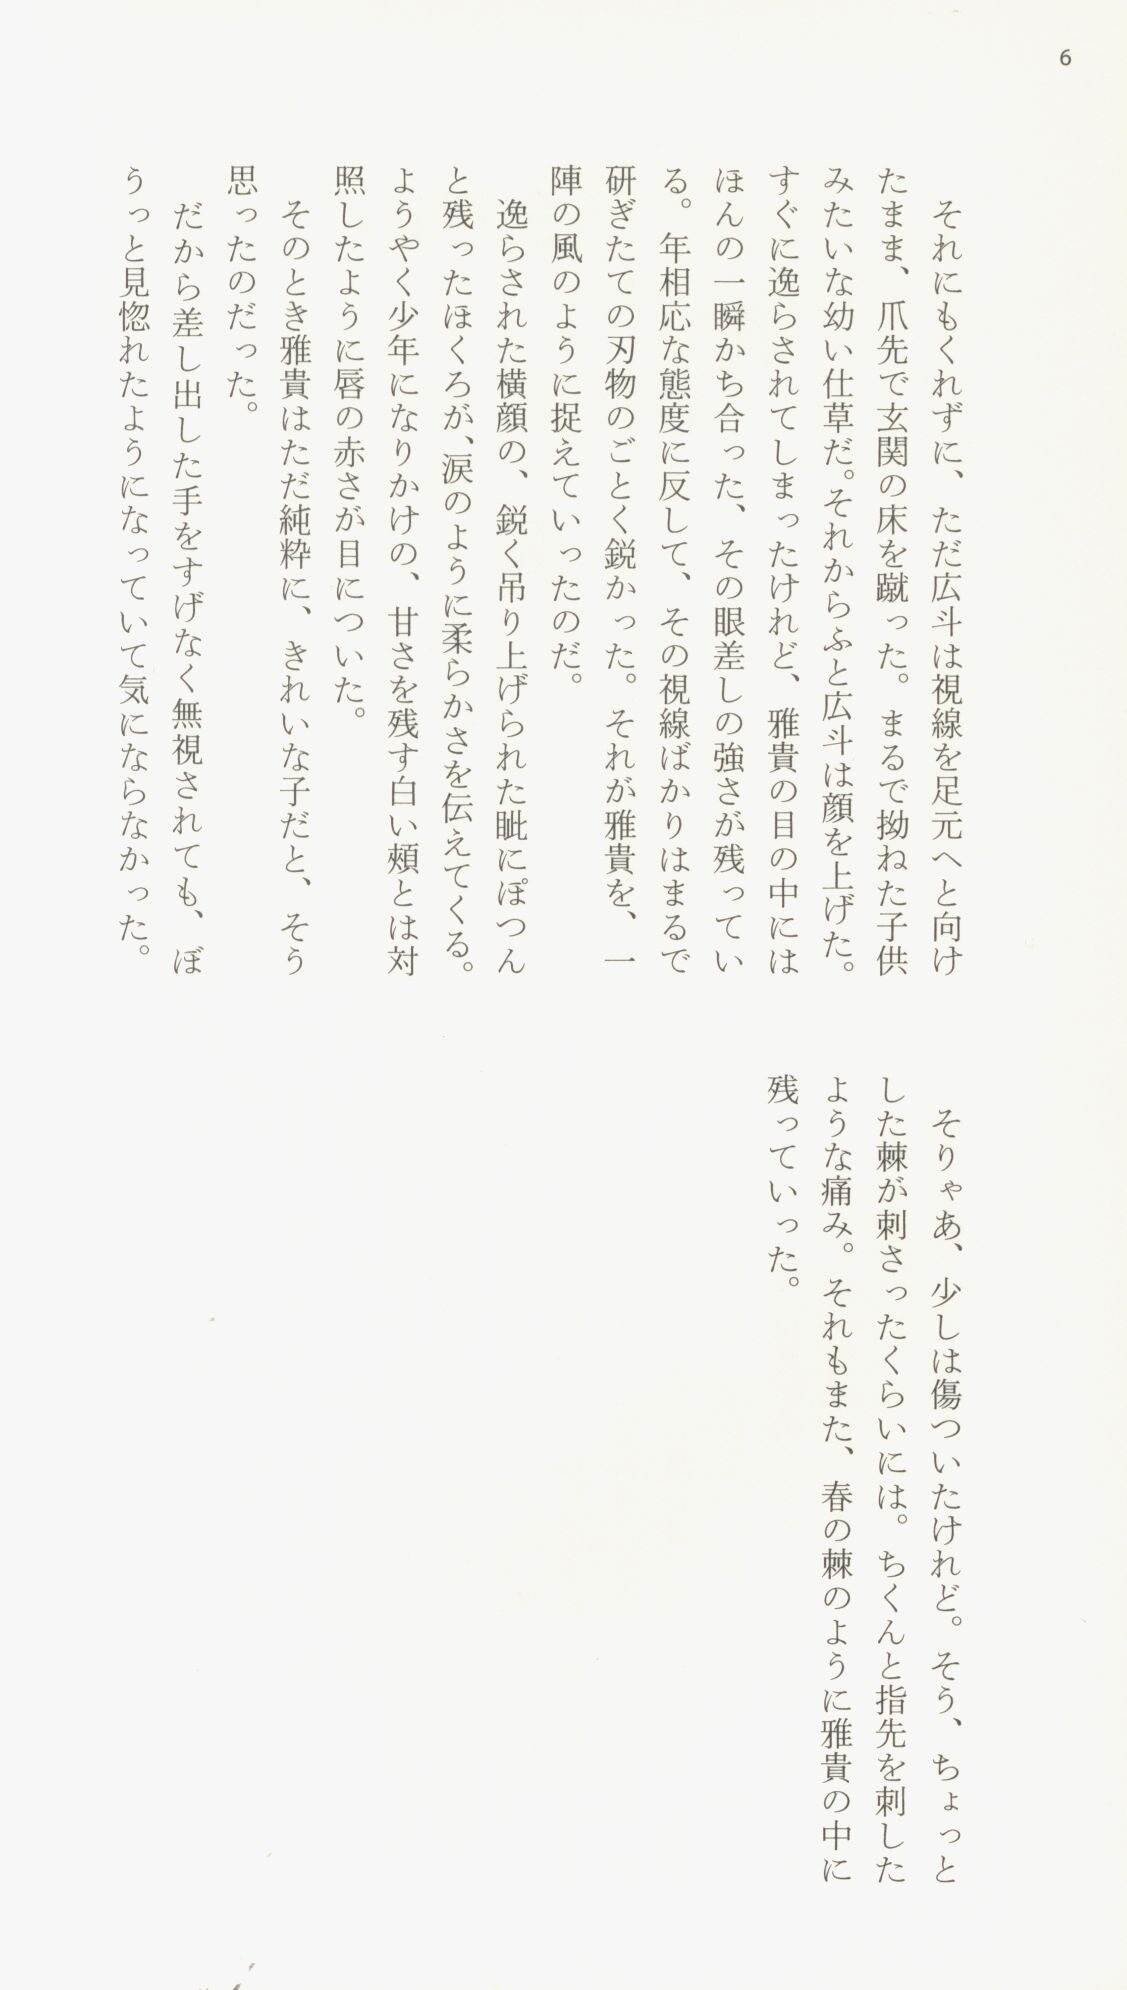 6
それにもくれずに、ただ広斗は視線を足元へと向け
たまま、爪先で玄関の床を蹴った。まるで拗ねた子供
みたいな幼い仕草だ。それからふと広斗は顔を上げた。
すぐに逸らされてしまったけれど、雅貴の目の中には
ほんの一瞬かち合った、その眼差しの強さが残ってい
る。年相応な態度に反して、その視線ばかりはまるで
研ぎたての刃物のごとく鋭かった。それが雅貴を、一
陣の風のように捉えていったのだ。
逸らされた横顔の、鋭く吊り上げられた眦にぽつん
と残ったほくろが、涙のように柔らかさを伝えてくる。
ようやく少年になりかけの、甘さを残す白い頬とは対
照したように唇の赤さが目についた。
そのとき雅貴はただ純粋に、きれいな子だと、そう
思ったのだった。
だから差し出した手をすげなく無視されても、ぼ
うっと見惚れたようになっていて気にならなかった。
そりゃあ、少しは傷ついたけれど。そう、ちょっと
した棘が刺さったくらいには。ちくんと指先を刺した
ような痛み。それもまた、春の棘のように雅貴の中に
残っていった。